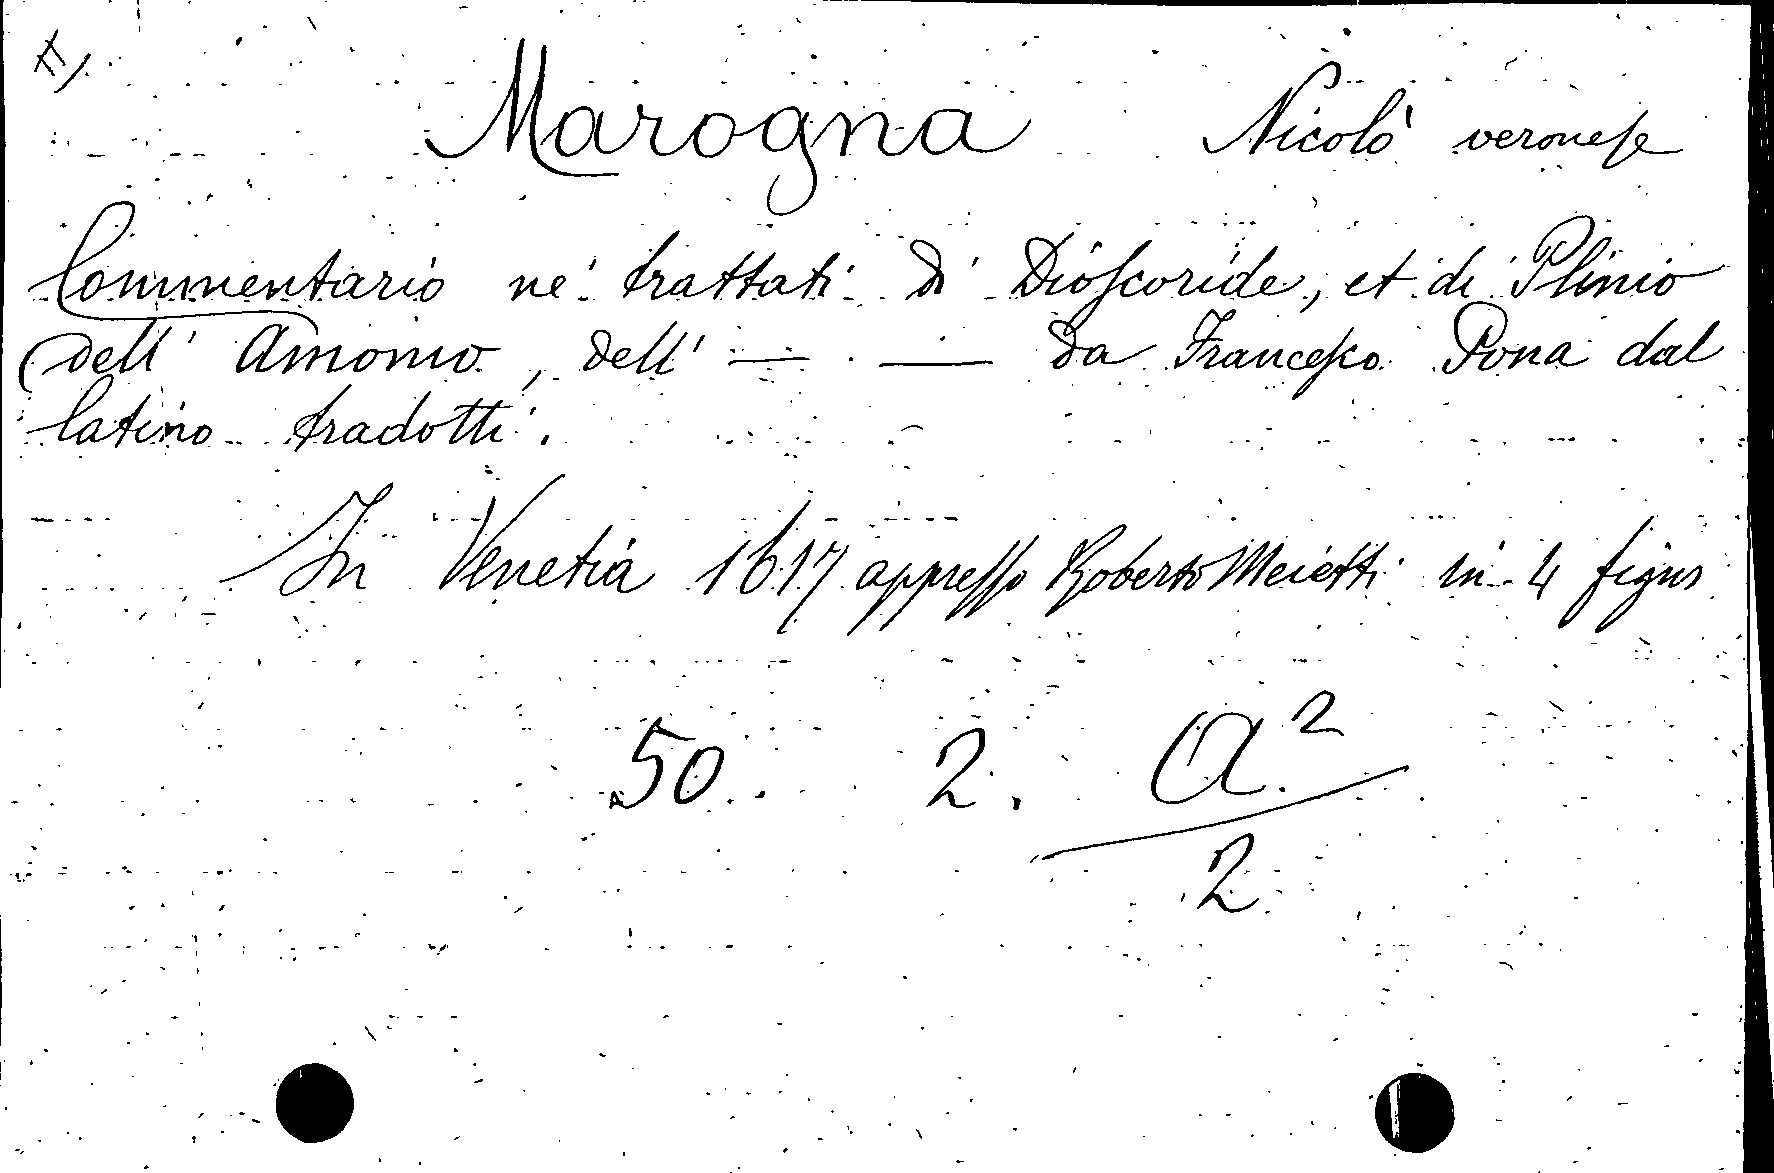 Marogna Nicolò veronese
Commentario ne' trattati di Dioscoride, et di Plinio
dell' Amomo, dell' — — da Francesco Pona dal
latino tradotti.
In Venetia 1617 appresso Roberto Meietti in 4 figus
50. 2. A.2
2